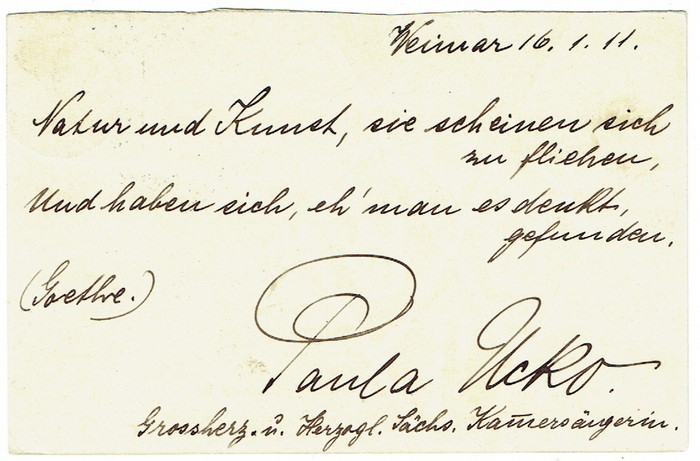 Weimar 16.1.11.
Natur und Kunst, sie scheinen sich
zu fliehen,
Und haben sich, eh' man es denkt,
gefunden.
(Goethe.)
Paula Ucko.
Grossherz. u. Herzogl. Sächs. Kam̄ersängerin.